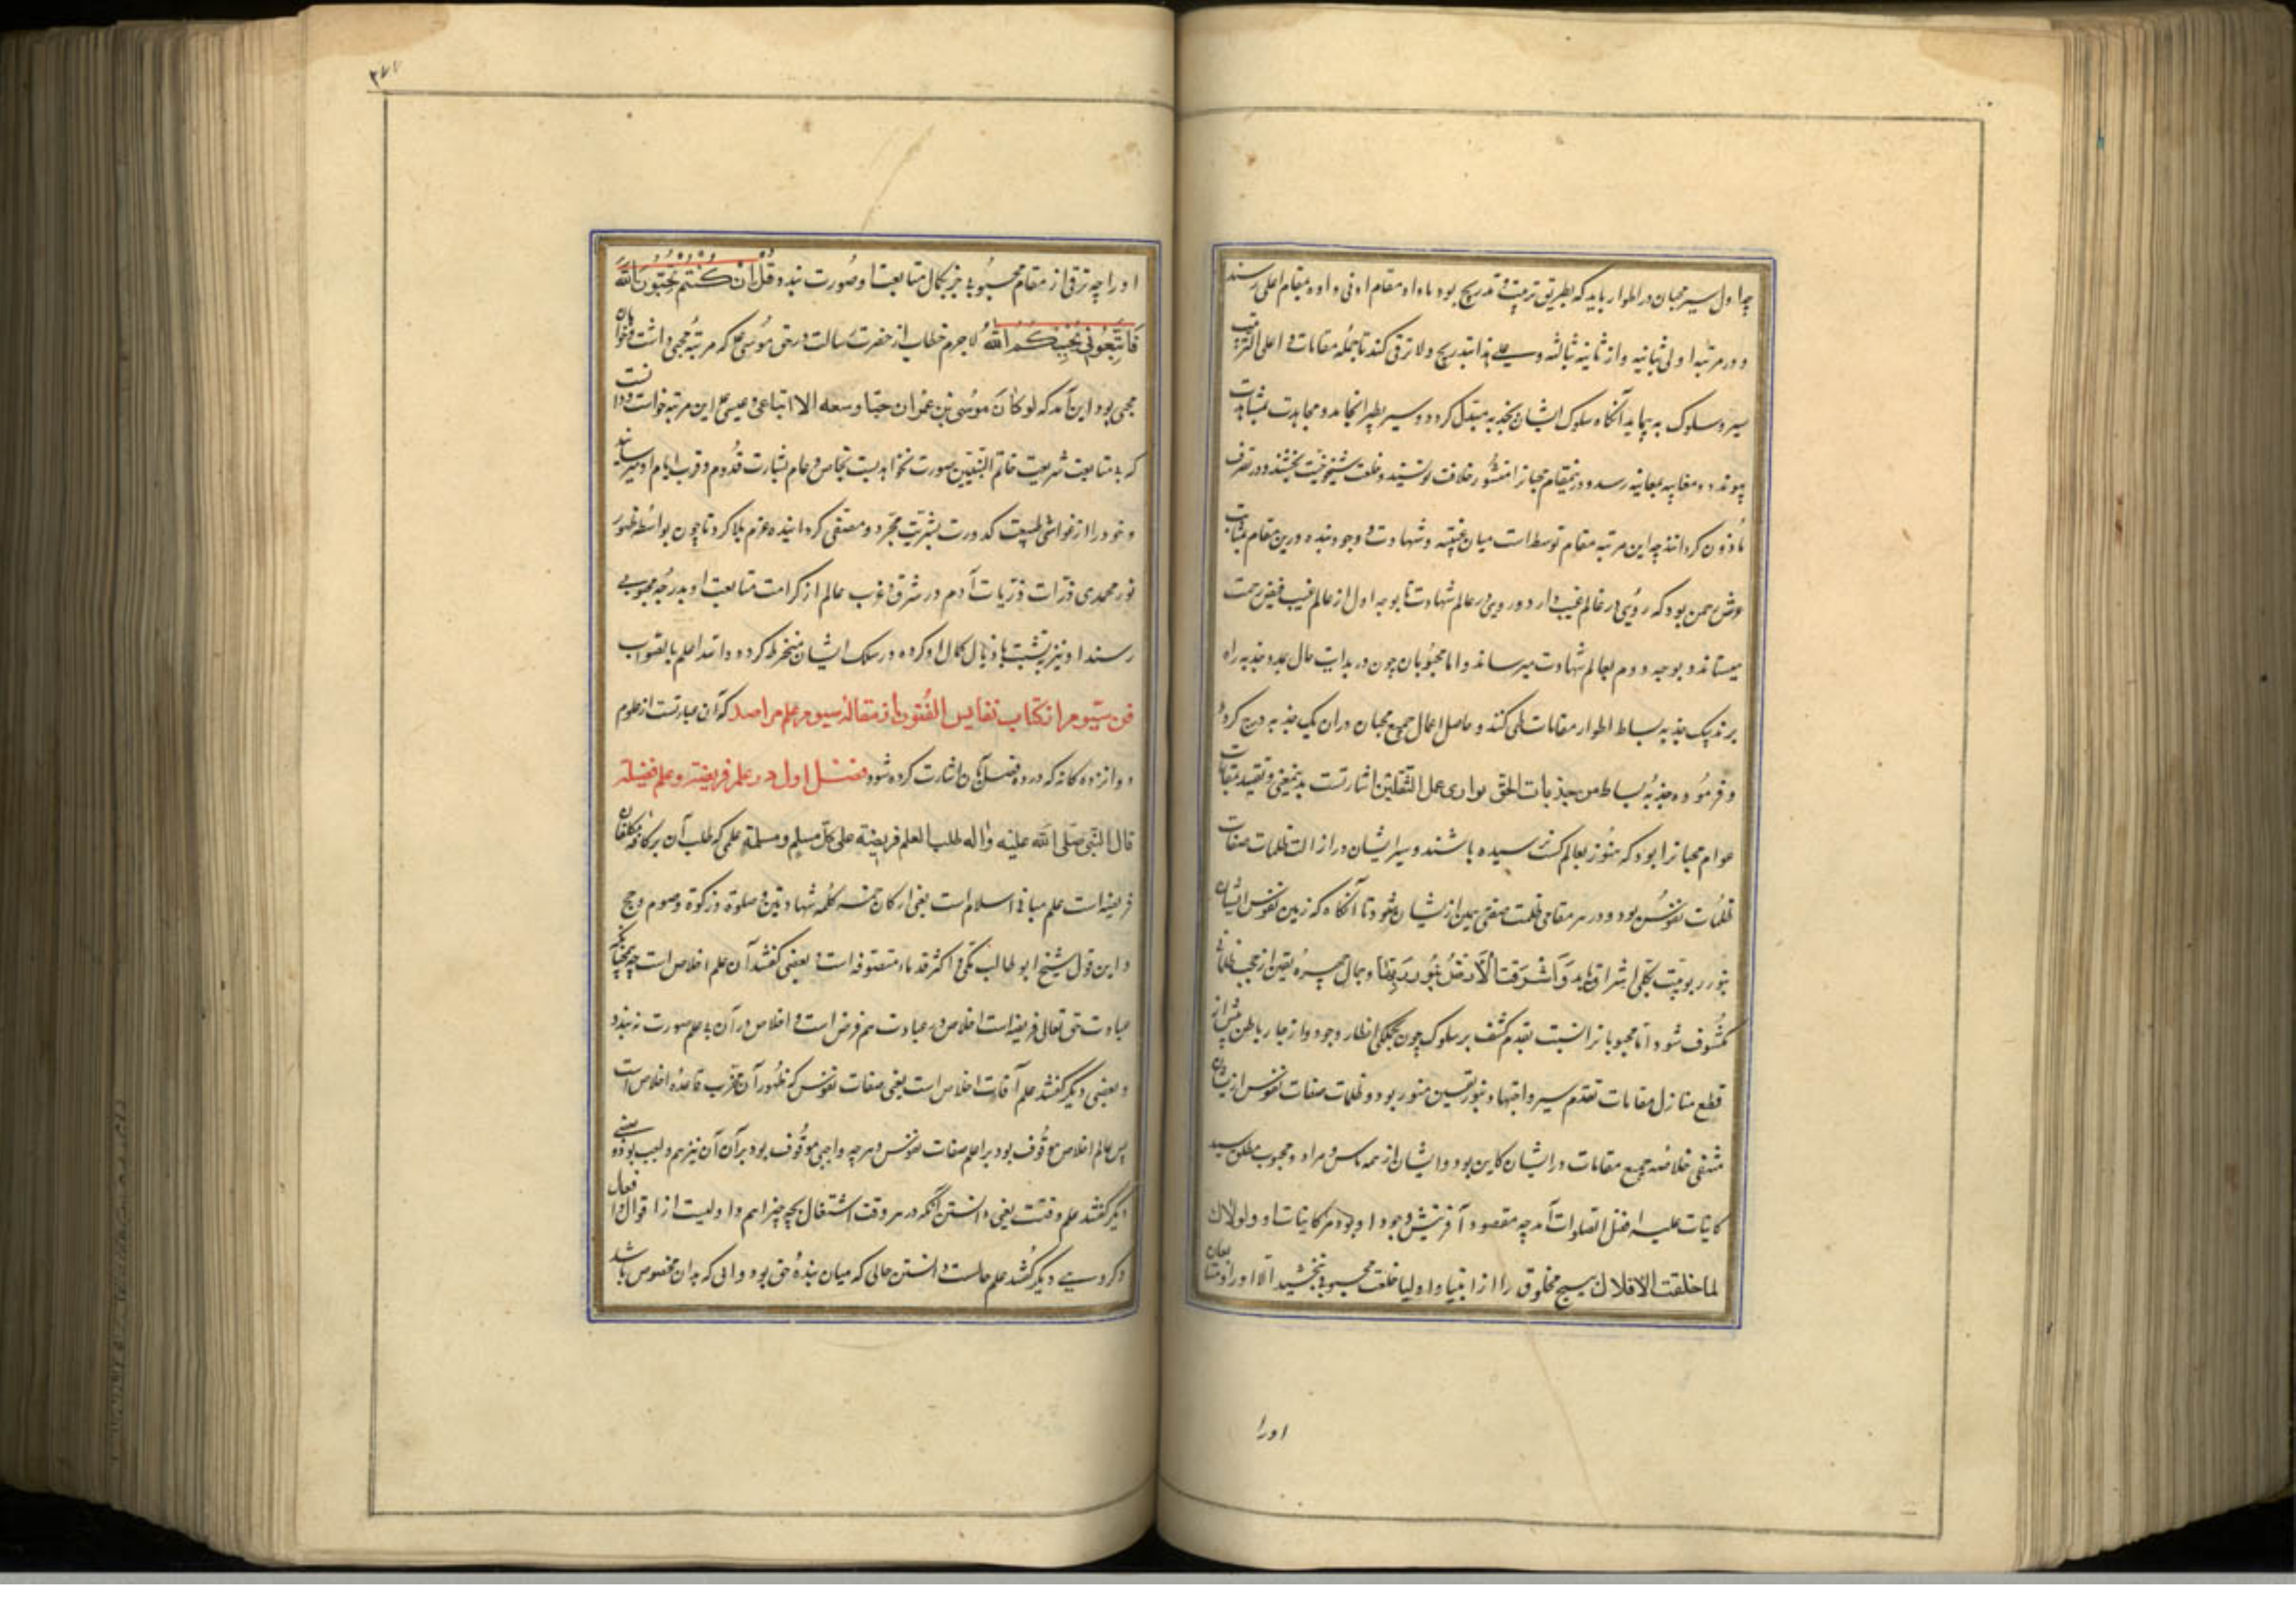 چه اول سیر محبان در اطوار باید که بطریق ترتیب و تدریج بود ماداو مقام ادنی داده بمقام اعلی رسند
و در مرتبه اولی بثانیه و از ثانیه بثالثه و علی هذا بتدریج و لا ترقی کند تا جمله مقامات اعلی
سیر و سلوک به پیماید آنگاه سلوک ایشان بجذبه مبدل گردد و سیر بطیر انجامد و مجاهدت بمشاهدت
پیوندد و مغایبه بمعاینه رسد و درینمقام محبانرا منشور خلافت نویسند و خلعت شیخوخیت بخشند و در تصرف
مأذون گردانند چه این مرتبه مقام توسط است میان غیب و شهادت و وجود بنده درین مقام بمثابت
عرش رحمن بود که روئی در عالم غیب دارد و رویی در عالم شهادت تا بوجه اول از عالم غیب فیض رحمت
میستاند و بوجه دوم بعالم شهادت میرساند و اما محبوبان چون در بدایت حال بمدد جذبه راه
برند بیک جذبه بساط اطوار مقامات طی کنند و حاصل اعمال جمیع محبان در آن یک جذبه درج کرده
و فرموده جذبة من جذبات الحق توازی عمل الثقلین اشارتست بدینمعنی و تقیید بمقامات
عوام محبانرا بود که هنوز بعالم کشف نرسیده باشند و سیر ایشان در ازالت ظلمات صفات
ظلمات نفوس بود و در هر مقامی ظلمت صفتی معین از ایشان شود تا آنگاه که زمین نفوس ایشان
بنور ربوبیت تجلی اشراق یابد وَاَشْرَقَتِ الْاَرْضُ بِنُورِ رَبِّهَا و جمال چهره یقین از حجب ظلمانی
مکشوف شود اما محبوبانرا نسبت بقدم کشف بر سلوک چون بجملگی اقطار وجود و ارجاء باطن پیش از
قطع منازل مقامات تقدم سیر و اجتهاد بنور یقین منور بود و ظلمات صفات نفوس از ایشان
منتفی خلاصه جمیع مقامات در ایشان کاین بود و ایشان از همه مراد و محبوب مطلق سید
کاینات علیه افضل الصلوات آمد چه مقصود آفرینش وجود او بود دیگر کاینات او و لولاک
لما خلقت الافلاک هیچ مخلوق را از انبیا و اولیا خلعت محبوبی نبخشید الا او را و متابعان
اورا
۲۷۷
او را چه ترقی از مقام محبوبی جز بکمال متابعت او صورت نبندد قُلْ اِنْ كُنْتُمْ تُحِبُّونَ اللهَ
فَاتَّبِعُونِي يُحْبِبْكُمُ اللهُ لا جرم خطاب از حضرت رسالت در حق موسی ع که مرتبه محبی داشت و خواهان
محبی بود این آمد که لو کان موسی بن عمران حیا وسعه الا اتباعی و عیسی ع این مرتبه خواست و دانست
که بمتابعت شریعت خاتم النبیین صورت نخواهد بست بخاص و عام بشارت قدوم و قرب ایام او میرسانید
و خود را از غواشی طبیعت کدورت بشریت مجرد و مصفی گردانیده عزم بالا کرد تا چون بواسطه ظهور
نور محمدی ذرات ذریات آدم در شرق و غرب عالم از کرامت متابعت او بدرجه محبوبی
رسند او نیز تشبث باذیال کمال او کرده در سلک ایشان منخرط گردد والله اعلم بالصواب
فن سیوم از کتاب نفایس الفنون از مقاله سیوم علم مراصد که آن عبارتست از علوم
دوازده گانه که در ده فصل بآن اشارت کرده شود فصل اول در علم فریضه و علم فضیلة
قال النبی صلی الله علیه واله طلب العلم فریضة علی کل مسلم و مسلمة علمی که طلب آن بر کافه مکلفان
فریضه است علم مبانی اسلام است یعنی ارکان خمسه کلمه شهادتین و صلوة و زکوة و صوم و حج
و این قول شیخ ابو طالب مکی و اکثر قدماء متصوفه است و بعضی گفتند آن علم اخلاص است چه همچنانکه
عبادت حق تعالی فریضه است اخلاص در عبادت هم فرض است و اخلاص در آن بی علم صورت نبندد
و بعضی دیگر گفتند علم آفات اخلاص است یعنی صفات نفوس که ظهور آن مخرب قاعده اخلاص است
پس علم اخلاص موقوف بود بر علم صفات نفوس و هر چه واجبی موقوف بود بر آن آن نیز هم واجب بود و بعضی
دیگر گفتند علم وقتست یعنی دانستن آنکه در هر وقت اشتغال بچه چیز اهم و اولیست از اقوال و افعال
و گروهی دیگر گفتند علم حالست دانستن حالی که میان بنده و حق بود و ادبی که بدان مخصوص باشد